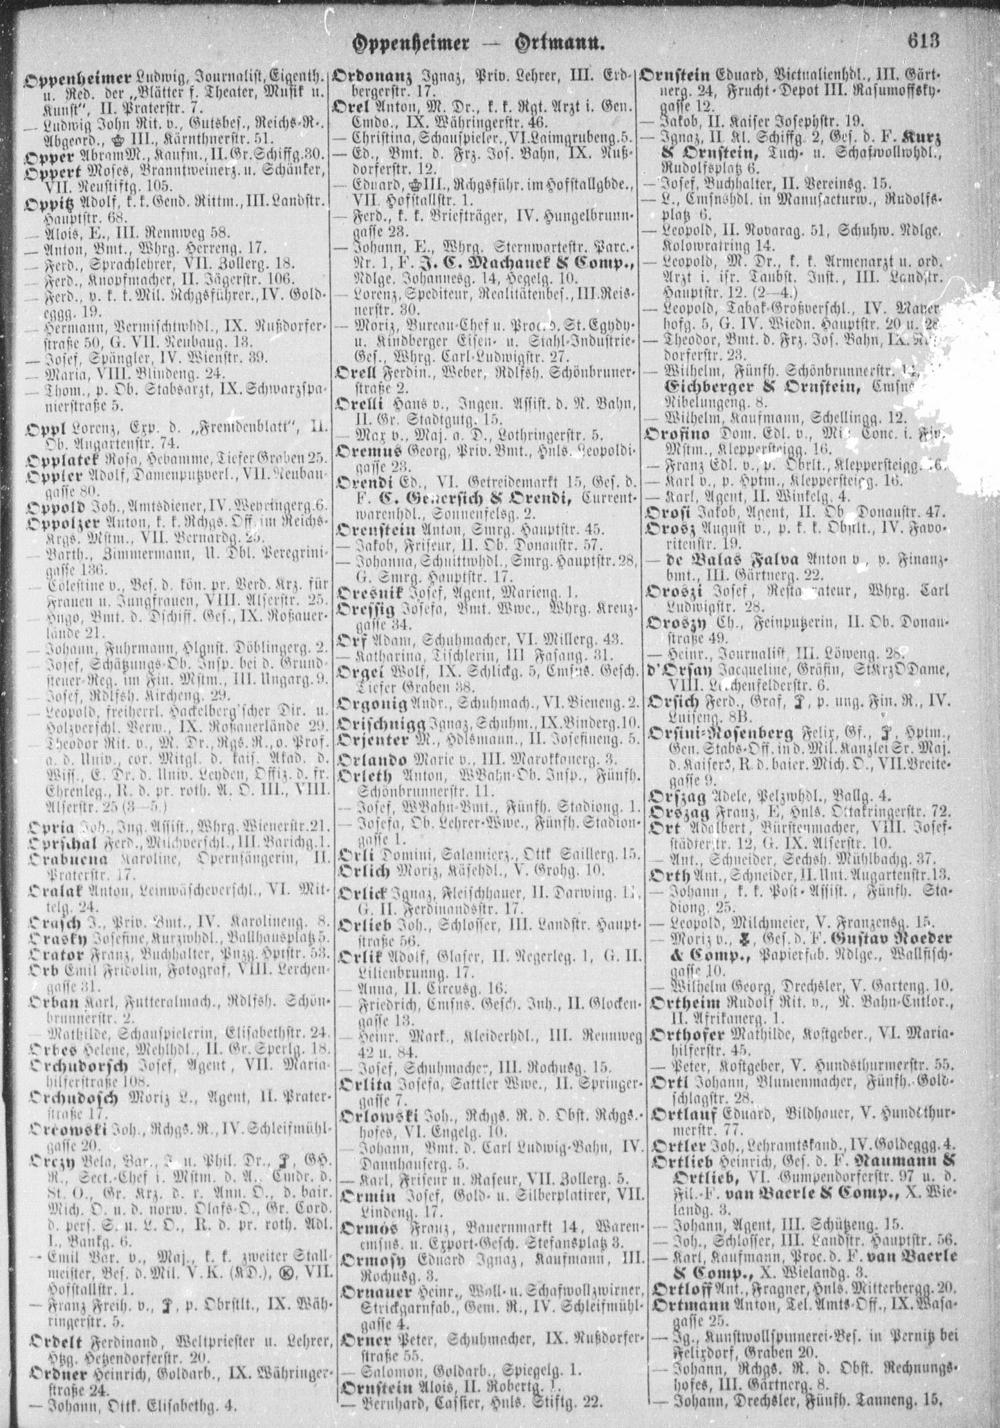 Oppenheimer — Ortmann. 613
Oppenheimer Ludwig, Journalist, Eigenth.
u. Red. der „Blätter f. Theater, Musik u.
Kunst", II. Praterstr. 7.
— Ludwig John Rit. v., Gutsbes., Reichs-R.-
Abgeord., III., Kärnthnerstr. 51.
Opper Abram M., Kaufm., II. Gr. Schiffg. 30.
Oppert Moses, Branntweinerz. u. Schänker,
VII. Neustiftg. 105.
Oppitz Adolf, k. k. Gend. Rittm., III. Landstr.
Hauptstr. 68.
— Alois, E., III. Rennweg 58.
— Anton, Bmt., Whrg. Herreng. 17.
— Ferd., Sprachlehrer, VII. Zollerg. 18.
— Ferd., Knopfmacher, II. Jägerstr. 106.
— Ferd., p. k. k. Mil. Rchgsführer, IV. Gold-
eggg. 19.
— Hermann, Vermischtwhdl., IX. Nußdorfer-
straße 50, G. VII. Neubaug. 13.
— Josef, Spängler, IV. Wienstr. 39.
— Maria, VIII. Blindeng. 24.
— Thom., p. Ob. Stabsarzt, IX. Schwarzspa-
nierstraße 5.
Oppl Lorenz, Exp. d. „Fremdenblatt", II.
Ob. Augartenstr. 74.
Opplatek Rosa, Hebamme, Tiefer Graben 25.
Oppler Adolf, Damenputzverl., VII. Neubau-
gasse 80.
Oppold Joh., Amtsdiener, IV. Weyringerg. 6.
Oppolzer Anton, k. k. Rchgs. Off. im Reichs-
Krgs. Mstm., VII. Bernardg. 25.
— Barth., Zimmermann, II. Dbl. Peregrini-
gasse 136.
— Cölestine v., Bes. d. kön. pr. Verd. Krz. für
Frauen u. Jungfrauen, VIII. Alserstr. 25.
— Hugo, Bmt. d. Dschiff. Ges., IX. Roßauer-
lände 21.
— Johann, Fuhrmann, Hlgnst. Döblingerg. 2.
— Josef, Schätzungs-Ob. Insp. bei d. Grund-
steuer-Reg. im Fin. Mstm., III. Ungarg. 9.
— Josef, Rdlfsh. Kircheng. 29.
— Leopold, freiherrl. Hackelberg'scher Dir. u.
Holzverschl. Verw., IX. Roßauerlände 29.
— Theodor Rit. v., M. Dr., Rgs. R., o. Prof.
a. d. Univ., cor. Mitgl. d. kais. Akad. d.
Wiss., E. Dr. d. Univ. Leyden, Offiz. d. fr.
Ehrenleg., R. d. pr. roth. A. O. III., VIII.
Alserstr. 25 (3—5.)
Opria Joh., Ing. Assist., Whrg. Wienerstr. 21.
Oprschal Ferd., Milchverschl., III. Barichg. 1.
Orabuena Karoline, Opernsängerin, II.
Praterstr. 17.
Oralak Anton, Leinwäscheverschl., VI. Mit-
telg. 24.
Orasch J., Priv. Bmt., IV. Karolineng. 8.
Orasky Josefine, Kurzwhdl., Ballhausplatz 5.
Orator Franz, Buchhalter, Pnzg. Hptstr. 53.
Orb Emil Fridolin, Fotograf, VIII. Lerchen-
gasse 31.
Orban Karl, Futteralmach., Rdlfsh. Schön-
brunnerstr. 2.
— Mathilde, Schauspielerin, Elisabethstr. 24.
Orbes Helene, Mehlhdl., II. Gr. Sperlg. 18.
Orchudorsch Josef, Agent, VII. Maria-
hilferstraße 108.
Orchudosch Moriz L., Agent, II. Prater-
straße 17.
Orcowski Joh., Rchgs. R., IV. Schleifmühl-
gasse 20.
Orczy Bela, Bar., J. u. Phil. Dr., GH.
R., Sect.-Chef i. Mstm. d. A., Cmdr. d.
St. O., Gr. Krz. d. r. Ann. O., d. bair.
Mich. O. u. d. norw. Olafs-O., Gr. Cord.
d. pers. S. u. L. O., R. d. pr. roth. Adl.
I., Bankg. 6.
— Emil Bar. v., Maj., k. k. zweiter Stall-
meister, Bes. d. Mil. V. K. (KD.), VII.
Hofstallstr. 1.
— Franz Freih. v., p. Obrstlt., IX. Wäh-
ringerstr. 5.
Ordelt Ferdinand, Weltpriester u. Lehrer,
Htzg. Hetzendorferstr. 20.
Ordner Heinrich, Goldarb., IX. Währinger-
straße 24.
— Johann, Ottk. Elisabethg. 4.
Ordonanz Ignaz, Priv. Lehrer, III. Erd-
bergerstr. 17.
Orel Anton, M. Dr., k. k. Rgt. Arzt i. Gen.
Cmdo., IX. Währingerstr. 46.
— Christina, Schauspieler., VI. Laimgrubeng. 5.
— Ed., Bmt. d. Frz. Jos. Bahn, IX. Nuß-
dorferstr. 12.
— Eduard, III., Rchgsführ. im Hofstallgbde.,
VII. Hofstallstr. 1.
— Ferd., k. k. Briefträger, IV. Hungelbrunn-
gasse 23.
— Johann, E., Whrg. Sternwartestr. Parc.-
Nr. 1, F. J. C. Machanek & Comp.,
Ndlge. Johannesg. 14, Hegelg. 10.
— Lorenz, Spediteur, Realitätenbes., III. Reis-
nerstr. 30.
— Moriz, Bureau-Chef u. Proc. d. St. Egydy-
u. Kindberger Eisen- u. Stahl-Industrie-
Ges., Whrg. Carl-Ludwigstr. 27.
Orell Ferdin., Weber, Rdlfsh. Schönbrunner-
straße 2.
Orelli Hans v., Ingen. Assist. d. N. Bahn,
II. Gr. Stadtgutg. 15.
— Max v., Maj. a. D., Lothringerstr. 5.
Oremus Georg, Priv. Bmt., Hnls. Leopoldi-
gasse 23.
Orendi Ed., VI. Getreidemarkt 15, Ges. d.
F. C. Genersich & Orendi, Current-
warenhdl., Sonnenfelsg. 2.
Orenstein Anton, Smrg. Hauptstr. 45.
— Jakob, Friseur, II. Ob. Donaustr. 57.
— Johanna, Schnittwhdl., Smrg. Hauptstr. 28,
G. Smrg. Hauptstr. 17.
Oresnik Josef, Agent, Marieng. 1.
Oressig Josefa, Bmt. Wwe., Whrg. Kreuz-
gasse 34.
Orf Adam, Schuhmacher, VI. Millerg. 43.
— Katharina, Tischlerin, III. Fasang. 31.
Orgei Wolf, IX. Schlickg. 5, Cmfns. Gesch.
Tiefer Graben 38.
Orgonig Andr., Schuhmach., VI. Bieneng. 2.
Orischnigg Ignaz, Schuhm., IX. Binderg. 10.
Orjenter M., Hdlsmann., II. Josefineng. 5.
Orlando Marie v., III. Marokkanerg. 3.
Orleth Anton, WBahn-Ob. Insp., Fünfh.
Schönbrunnerstr. 11.
— Josef, WBahn-Bmt., Fünfh. Stadiong. 1.
— Josefa, Ob. Lehrer-Wwe., Fünfh. Stadion-
gasse 1.
Orli Domini, Salamierz., Ottk. Saillerg. 15.
Orlich Moriz, Käsehdl., V. Grohg. 10.
Orlick Ignaz, Fleischhauer, II. Darwing.
G. II. Ferdinandsstr. 17.
Orlieb Joh., Schlosser, III. Landstr. Haupt-
straße 56.
Orlik Adolf, Glaser, II. Negerleg. 1, G. II.
Lilienbrunng. 17.
— Anna, II. Circusg. 16.
— Friedrich, Cmfns. Gesch. Inh., II. Glocken-
gasse 13.
— Heinr. Mark., Kleiderhdl., III. Rennweg
42 u. 84.
— Josef, Schuhmacher, III. Rochusg. 15.
Orlita Josefa, Sattler Wwe., II. Springer-
gasse 7.
Orlowski Joh., Rchgs. R. d. Obst. Rchgs.-
hofes, VI. Engelg. 10.
— Johann, Bmt. d. Carl Ludwig-Bahn, IV.
Dannhauserg. 5.
— Karl, Friseur u. Raseur, VII. Zollerg. 5.
Ormin Josef, Gold- u. Silberplatirer, VII.
Lindeng. 17.
Ormós Franz, Bauernmarkt 14, Waren-
cmfns. u. Export-Gesch. Stefansplatz 3.
Ormosy Eduard Ignaz, Kaufmann, III.
Rochusg. 3.
Ornauer Heinr., Woll- u. Schafwollzwirner,
Strickgarnfab., Gem. R., IV. Schleifmühl-
gasse 4.
Orner Peter, Schuhmacher, IX. Nußdorfer-
straße 55.
— Salomon, Goldarb., Spiegelg. 1.
Ornstein Alois, II. Robertg. 1.
— Bernhard, Cassier, Hnls. Stiftg. 22.
Ornstein Eduard, Victualienhdl., III. Gärt-
nerg. 24, Frucht-Depot III. Rasumoffsky-
gasse 12.
— Jakob, II. Kaiser Josephstr. 19.
— Ignaz, II. Kl. Schiffg. 2, Ges. d. F. Kurz
& Ornstein, Tuch- u. Schafwollwhdl.,
Rudolfsplatz 6.
— Josef, Buchhalter, II. Vereinsg. 15.
— L., Cmfnshdl. in Manufacturw., Rudolfs-
platz 6.
— Leopold, II. Novarag. 51, Schuhw. Ndlge.
Kolowratring 14.
— Leopold, M. Dr., k. k. Armenarzt u. ord.
Arzt i. isr. Taubst. Inst., III. Landstr.
Hauptstr. 12. (2—4.)
— Leopold, Tabak-Großverschl., IV. Mayer-
hofg. 5, G. IV. Wiedn. Hauptstr. 20 u.
— Theodor, Bmt. d. Frz. Jos. Bahn, IX.
dorferstr. 23.
— Wilhelm, Fünfh. Schönbrunnerstr.
Eichberger & Ornstein, Cmfns
Nibelungeng. 8.
— Wilhelm, Kaufmann, Schellingg. 12.
Orofino Dom. Edl. v., Min. Conc. i. Fin.
Mstm., Kleppersteigg. 16.
— Franz Edl. v., p. Obrlt., Kleppersteigg. 16.
— Karl v., p. Hptm., Kleppersteigg. 16.
— Karl, Agent, II. Winkelg. 4.
Orosi Jakob, Agent, II. Ob. Donaustr. 47.
Orosz August v., p. k. k. Obstlt., IV. Favo-
ritenstr. 19.
— de Balas Falva Anton v., p. Finanz-
bmt., III. Gärtnerg. 22.
Oroszi Josef, Restaurateur, Whrg. Carl
Ludwigstr. 28.
Oroszy Ch., Feinputzerin, II. Ob. Donau-
straße 49.
— Heinr., Journalist, III. Löweng. 28.
d'Orsay Jacqueline, Gräfin, StKrzODame,
VIII. Lerchenfelderstr. 6.
Orsich Ferd., Graf, p. ung. Fin. R., IV.
Luiseng. 8B.
Orsini-Rosenberg Felix, Gf., Hptm.,
Gen. Stabs-Off. in d. Mil. Kanzlei Sr. Maj.
d. Kaisers, R. d. baier. Mich. O., VII. Breite-
gasse 9.
Orszag Adele, Pelzwhdl., Ballg. 4.
Orszag Franz, E, Hnls. Ottakringerstr. 72.
Ort Adalbert, Bürstenmacher, VIII. Josef-
städterstr. 12, G. IX. Alserstr. 10.
— Ant., Schneider, Sechsh. Mühlbachg. 37.
Orth Ant., Schneider, II. Unt. Augartenstr. 13.
— Johann, k. k. Post-Assist., Fünfh. Sta-
diong. 25.
— Leopold, Milchmeier, V. Franzensg. 15.
— Moriz v., Ges. d. F. Gustav Roeder
& Comp., Papierfab. Ndlge., Wallfisch-
gasse 10.
— Wilhelm Georg, Drechsler, V. Garteng. 10.
Ortheim Rudolf Rit. v., N. Bahn-Cntlor.,
II. Afrikanerg. 1.
Orthofer Mathilde, Kostgeber., VI. Maria-
hilferstr. 45.
— Peter, Kostgeber, V. Hundsthurmerstr. 55.
Ortl Johann, Blumenmacher, Fünfh. Gold-
schlagstr. 28.
Ortlauf Eduard, Bildhauer, V. Hundsthur-
merstr. 77.
Ortler Joh., Lehramtskand., IV. Goldeggg. 4.
Ortlieb Heinrich, Ges. d. F. Naumann &
Ortlieb, VI. Gumpendorferstr. 97 u. d.
Fil.-F. van Baerle & Comp., X. Wie-
landg. 3.
— Johann, Agent, III. Schützeng. 15.
— Joh., Schlosser, III. Landstr. Hauptstr. 56.
— Karl, Kaufmann, Proc. d. F. van Baerle
& Comp., X. Wielandg. 3.
Ortloff Ant., Fragner, Hnls. Mitterbergg. 20.
Ortmann Anton, Tel. Amts-Off., IX. Wasa-
gasse 25.
— Ig., Kunstwollspinnerei-Bes. in Pernitz bei
Felixdorf, Graben 20.
— Johann, Rchgs. R. d. Obst. Rechnungs-
hofes, III. Gärtnerg. 8.
— Johann, Drechsler, Fünfh. Tanneng. 15.